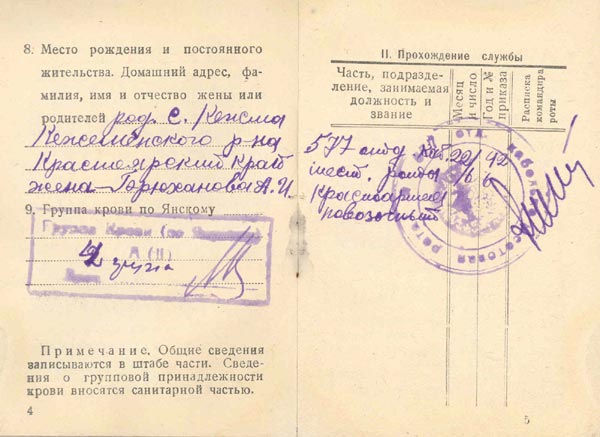 8. Место рождения и постоянного
жительства. Домашний адрес, фа-
милия, имя и отчество жены или
родителей род. с. Кежма
Кежемского р-на
Красноярский край
жена
9. Группа крови по Янскому
Группа Крови (по Янскому)
А (II)
2 группа
Примечание. Общие сведения
записываются в штабе части. Сведе-
ния о групповой принадлежности
крови вносятся санитарной частью.
4
II. Прохождение службы
Часть, подразде-
ление, занимаемая
должность и
звание
Месяц
и число
Год и №
приказа
Расписка
командира
роты
577 22/ 42
роты 6
Красноармеец
повозочный
5